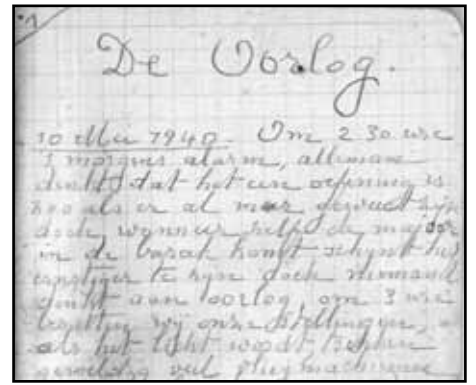 1
De Oorlog.
10 Mei 1940. Om 2 30 ure
's morgens alarm, alleman
denkt dat het een oefening is
zoo als er al meer geweest zijn
doch, wanneer zelfs de majoor
in de barak komt schynt het
ernstiger te zyn doch niemand
denkt aan oorlog, om 3 ure
wy onze stellingen,
als het licht wordt
geweldig veel vliegmachienen